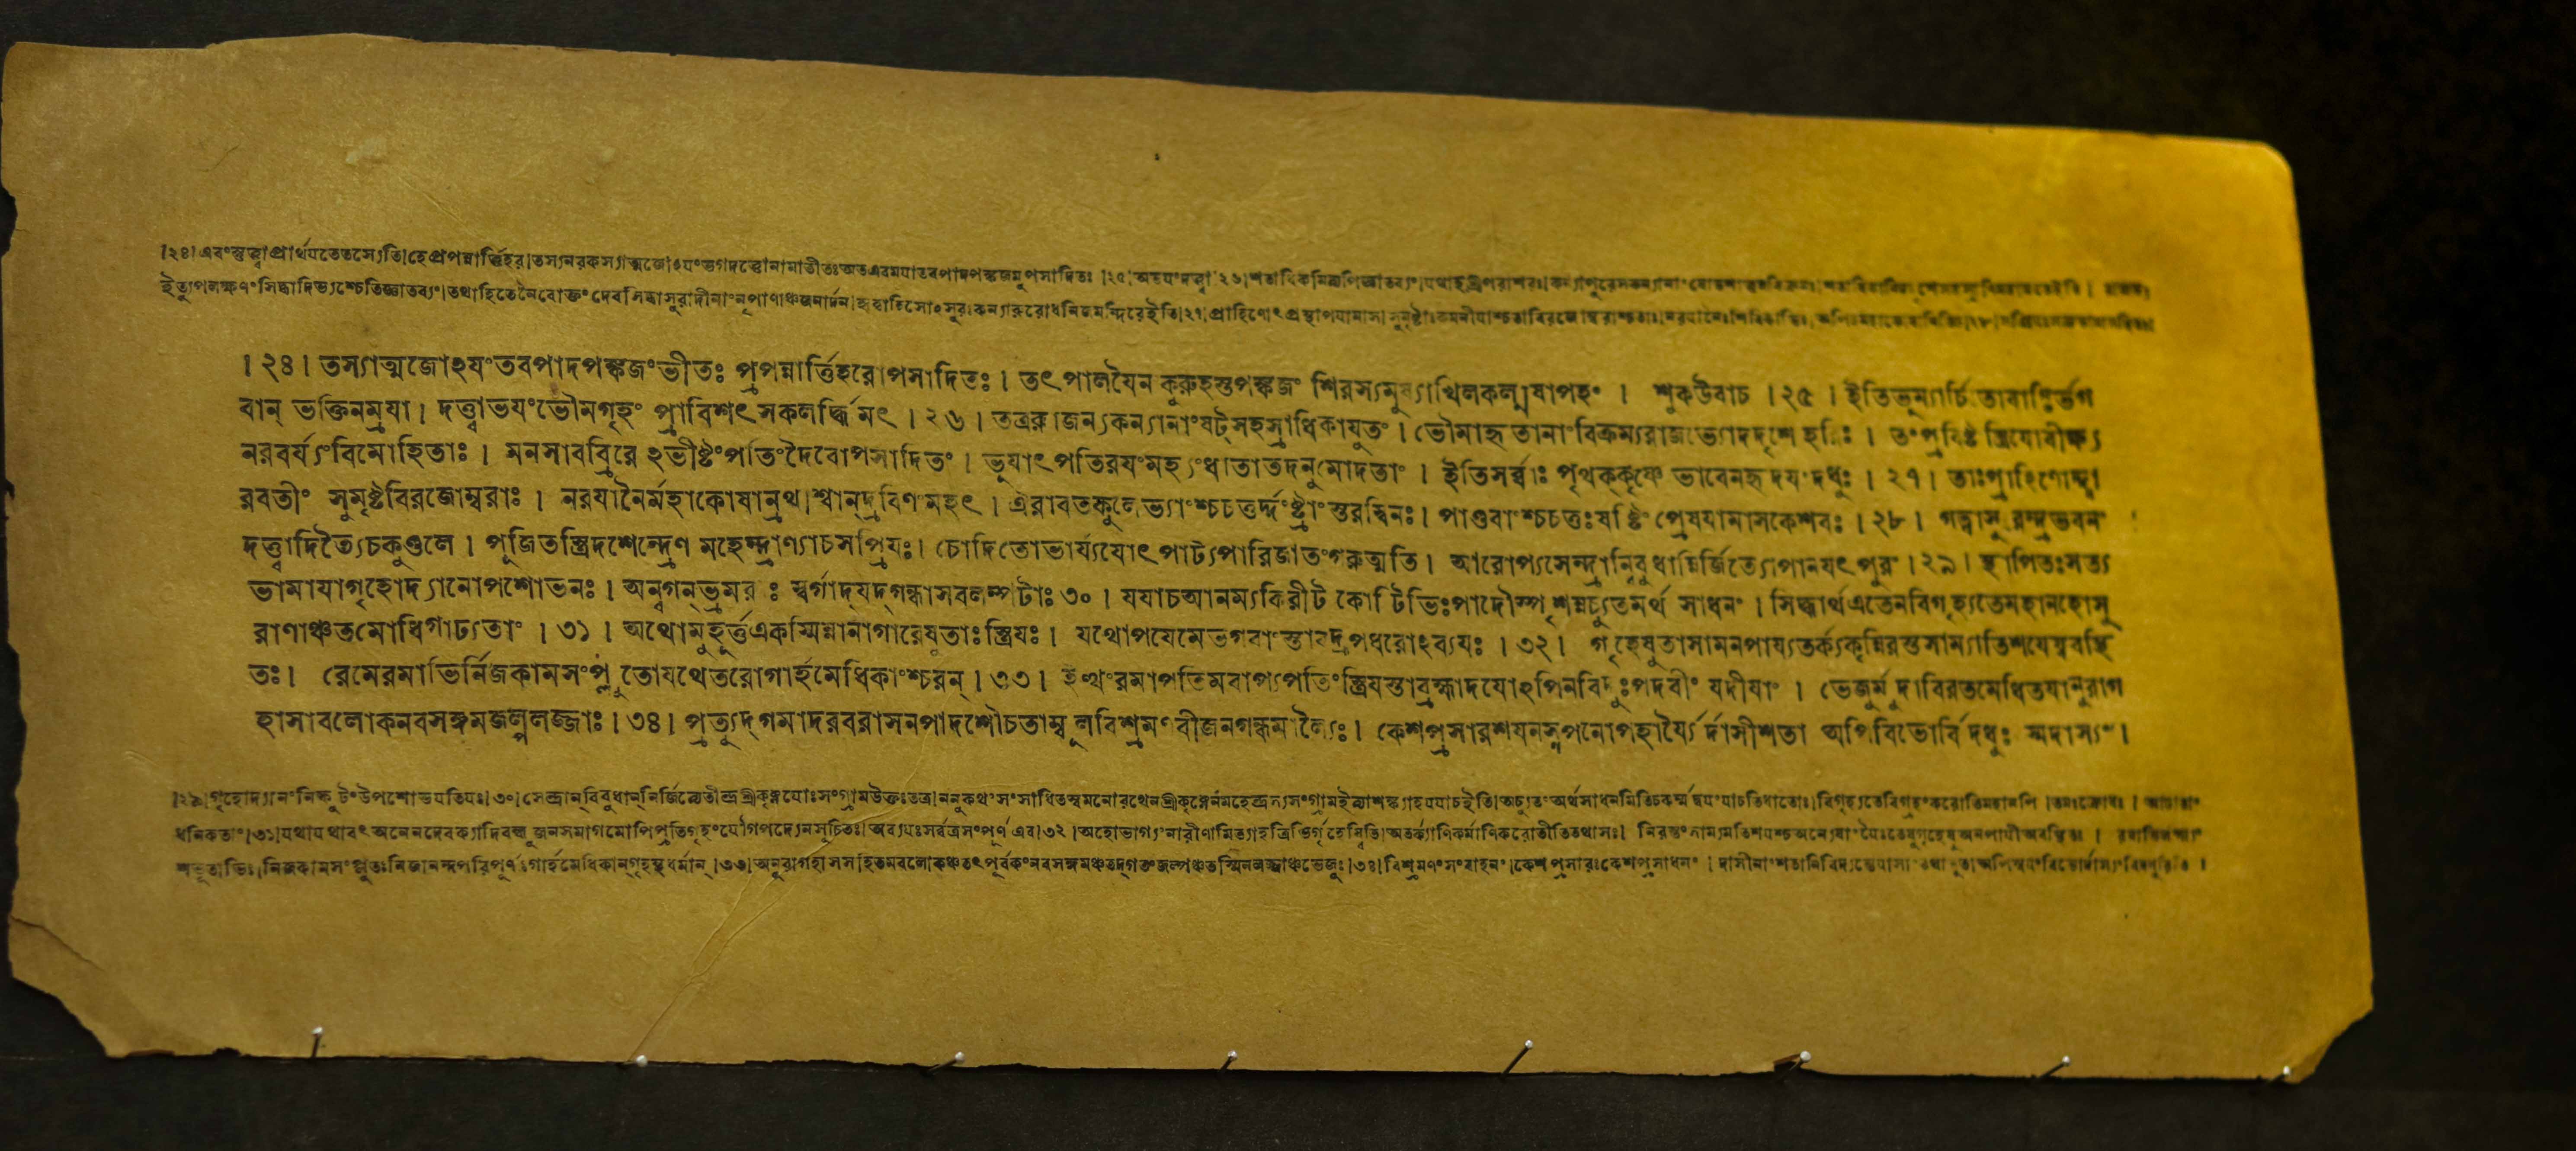 ।২৪।এবংস্তুত্বাপ্রার্থযতেতস্যেতি।হেপ্রপন্নার্ত্তিহর।তস্যনরকস্যাত্মজোঽযংভগদত্তোনামভীতঃঅতএবমযাতবপাদপঙ্কজমুপসাদিতঃ ।২৫।অভযংদত্ত্বা।২৬।
ইত্যুপলক্ষণংসিদ্ধাদিভ্যশ্চেতিজ্ঞাতব্যং।তথাহিতেনৈবোক্তংদেবসিদ্ধাসুরাদীনাংনৃপাণাঞ্চজনার্দন।হৃত্বাহিসোঽসুরঃকন্যারুরোধনিজমন্দিরেইতি।২৭।প্রাহিণোৎপ্রস্থাপযামাস।
।২৪। তস্যাত্মজোঽযংতবপাদপঙ্কজংভীতঃ প্রপন্নার্ত্তিহরোপসাদিতঃ । তৎপালযৈন কুরুহস্তপঙ্কজং শিরস্যমুষ্যাখিলকল্মষাপহং । শুকউবাচ ।২৫ । ইতিভূম্যার্চিতোবাগ্ভির্ভগ
বান্ ভক্তিনম্রযা। দত্ত্বাভযংভৌমগৃহং প্রাবিশৎসকলর্দ্ধিমৎ । ২৬ । তত্ররাজন্যকন্যানাংষট্সহস্রাধিকাযুতং । ভৌমাহৃতানাংবিক্রম্যরাজভ্যোদদৃশে হরিঃ । তংপ্রবিষ্টংস্ত্রিযোবীক্ষ্য
নরবর্য্যংবিমোহিতাঃ । মনসাবব্রিরে ঽভীষ্টংপতিংদৈবোপসাদিতং । ভূযাৎপতিরযংমহ্যংধাতাতদনুমোদতাং । ইতিসর্ব্বাঃ পৃথক্কৃষ্ণে ভাবেনহৃদযংদধুঃ । ২৭ । তাঃপ্রাহিণোদ্দ্বা
রবতীং সুমৃষ্টবিরজোম্বরাঃ । নরযানৈর্মহাকোষান্রথাশ্বান্দ্রবিণংমহৎ । ঐরাবতকুলেভাংশ্চচতুর্দ্দংষ্ট্রাংস্তরস্বিনঃ। পাণ্ডুবাংশ্চচতুঃষষ্টিং প্রেষযামাসকেশবঃ । ২৮ । গত্বাসুরেন্দ্রভবনং
দত্ত্বাদিত্যৈচকুণ্ডলে । পূজিতস্ত্রিদশেন্দ্রেণ মহেন্দ্রাণ্যাচসপ্রিযঃ। চোদিতোভার্য্যযোৎপাট্যপারিজাতংগরুত্মতি। আরোপ্যসেন্দ্রান্বিবুধান্নির্জিত্যোপানযৎপুরং।২৯। স্থাপিতঃসত্য
ভামাযাগৃহোদ্যানোপশোভনঃ। অন্বগন্ভ্রমরাঃ স্বর্গাদ্যদ্গন্ধাসবলম্পটাঃ ৩০ । যযাচআনম্যকিরীট কোটিভিঃপাদৌস্পৃশন্নচ্যুতমর্থ সাধনং । সিদ্ধার্থএতেনবিগৃহ্যতেমহানহোসু
রাণাঞ্চতমোধিগাঢ্যতাং । ৩১ । অথোমুহূর্ত্তএকস্মিন্নানাগারেষুতাঃস্ত্রিযঃ। যথোপযেমেভগবাংস্তাবদ্রূপধরোঽব্যযঃ । ৩২। গৃহেষুতাসামনপায্যতর্ক্যকৃন্নিরস্তসাম্যাতিশযেষ্ববস্থি
তঃ। রেমেরমাভির্নিজকামসংপ্লুতোযথেতরোগার্হমেধিকাংশ্চরন্ । ৩৩ । ইত্থংরমাপতিমবাপ্যপতিংস্ত্রিযস্তাব্রহ্মাদযোঽপিনবিদুঃপদবীং যদীযাং । ভেজুর্মুদাবিরতমেধিতযানুরাগ
হাসাবলোকনবসঙ্গমজল্পলজ্জাঃ। ৩৪। প্রত্যুদ্গমাদরবরাসনপাদশৌচতাম্বূলবিশ্রমণবীজনগন্ধমাল্যৈঃ। কেশপ্রসারশযনস্নপনোপহার্য্যৈর্দাসীশতা অপিবিভোর্বিদধুঃ স্মদাস্যং।
।২৯।গৃহোদ্যানংনিষ্কুটংউপশোভযতিযঃ।৩০।সেন্দ্রান্বিবুধান্নির্জিত্যেতীন্দ্রশ্রীকৃষ্ণযোঃসংগ্রামউক্তঃতত্র।ননুকথংসংসাধিতস্বমনোরথেনশ্রীকৃষ্ণেনমহেন্দ্রস্যসংগ্রামইত্যাশঙ্ক্যাহযযাচইতি।অচ্যুতংঅর্থসাধনমিতি
ধনিকতাং।৩১।যথাযথাবৎঅনেনদেবক্যাদিবন্ধুজনসমাগমোপিপ্রতিগৃহংযৌগপদ্যেনসূচিতঃ।অব্যযঃসর্বত্রসংপূর্ণএব।৩২।অহোভাগ্যংনারীণামিত্যাহ
নিজকামসংপ্লুতঃনিজানন্দপরিপূর্ণঃগার্হমেধিকান্গৃহস্থধর্মান্।৩৩।অনুরাগহাসসহিতমবলোকঞ্চতৎপূর্বকংনবসঙ্গমঞ্চতদ্গতংজল্পঞ্চতস্মিন্লজ্জাঞ্চভেজুঃ।৩৪।বিশ্রমণংসংবাহনং।কেশপ্রসারঃকেশপ্রসাধনং।